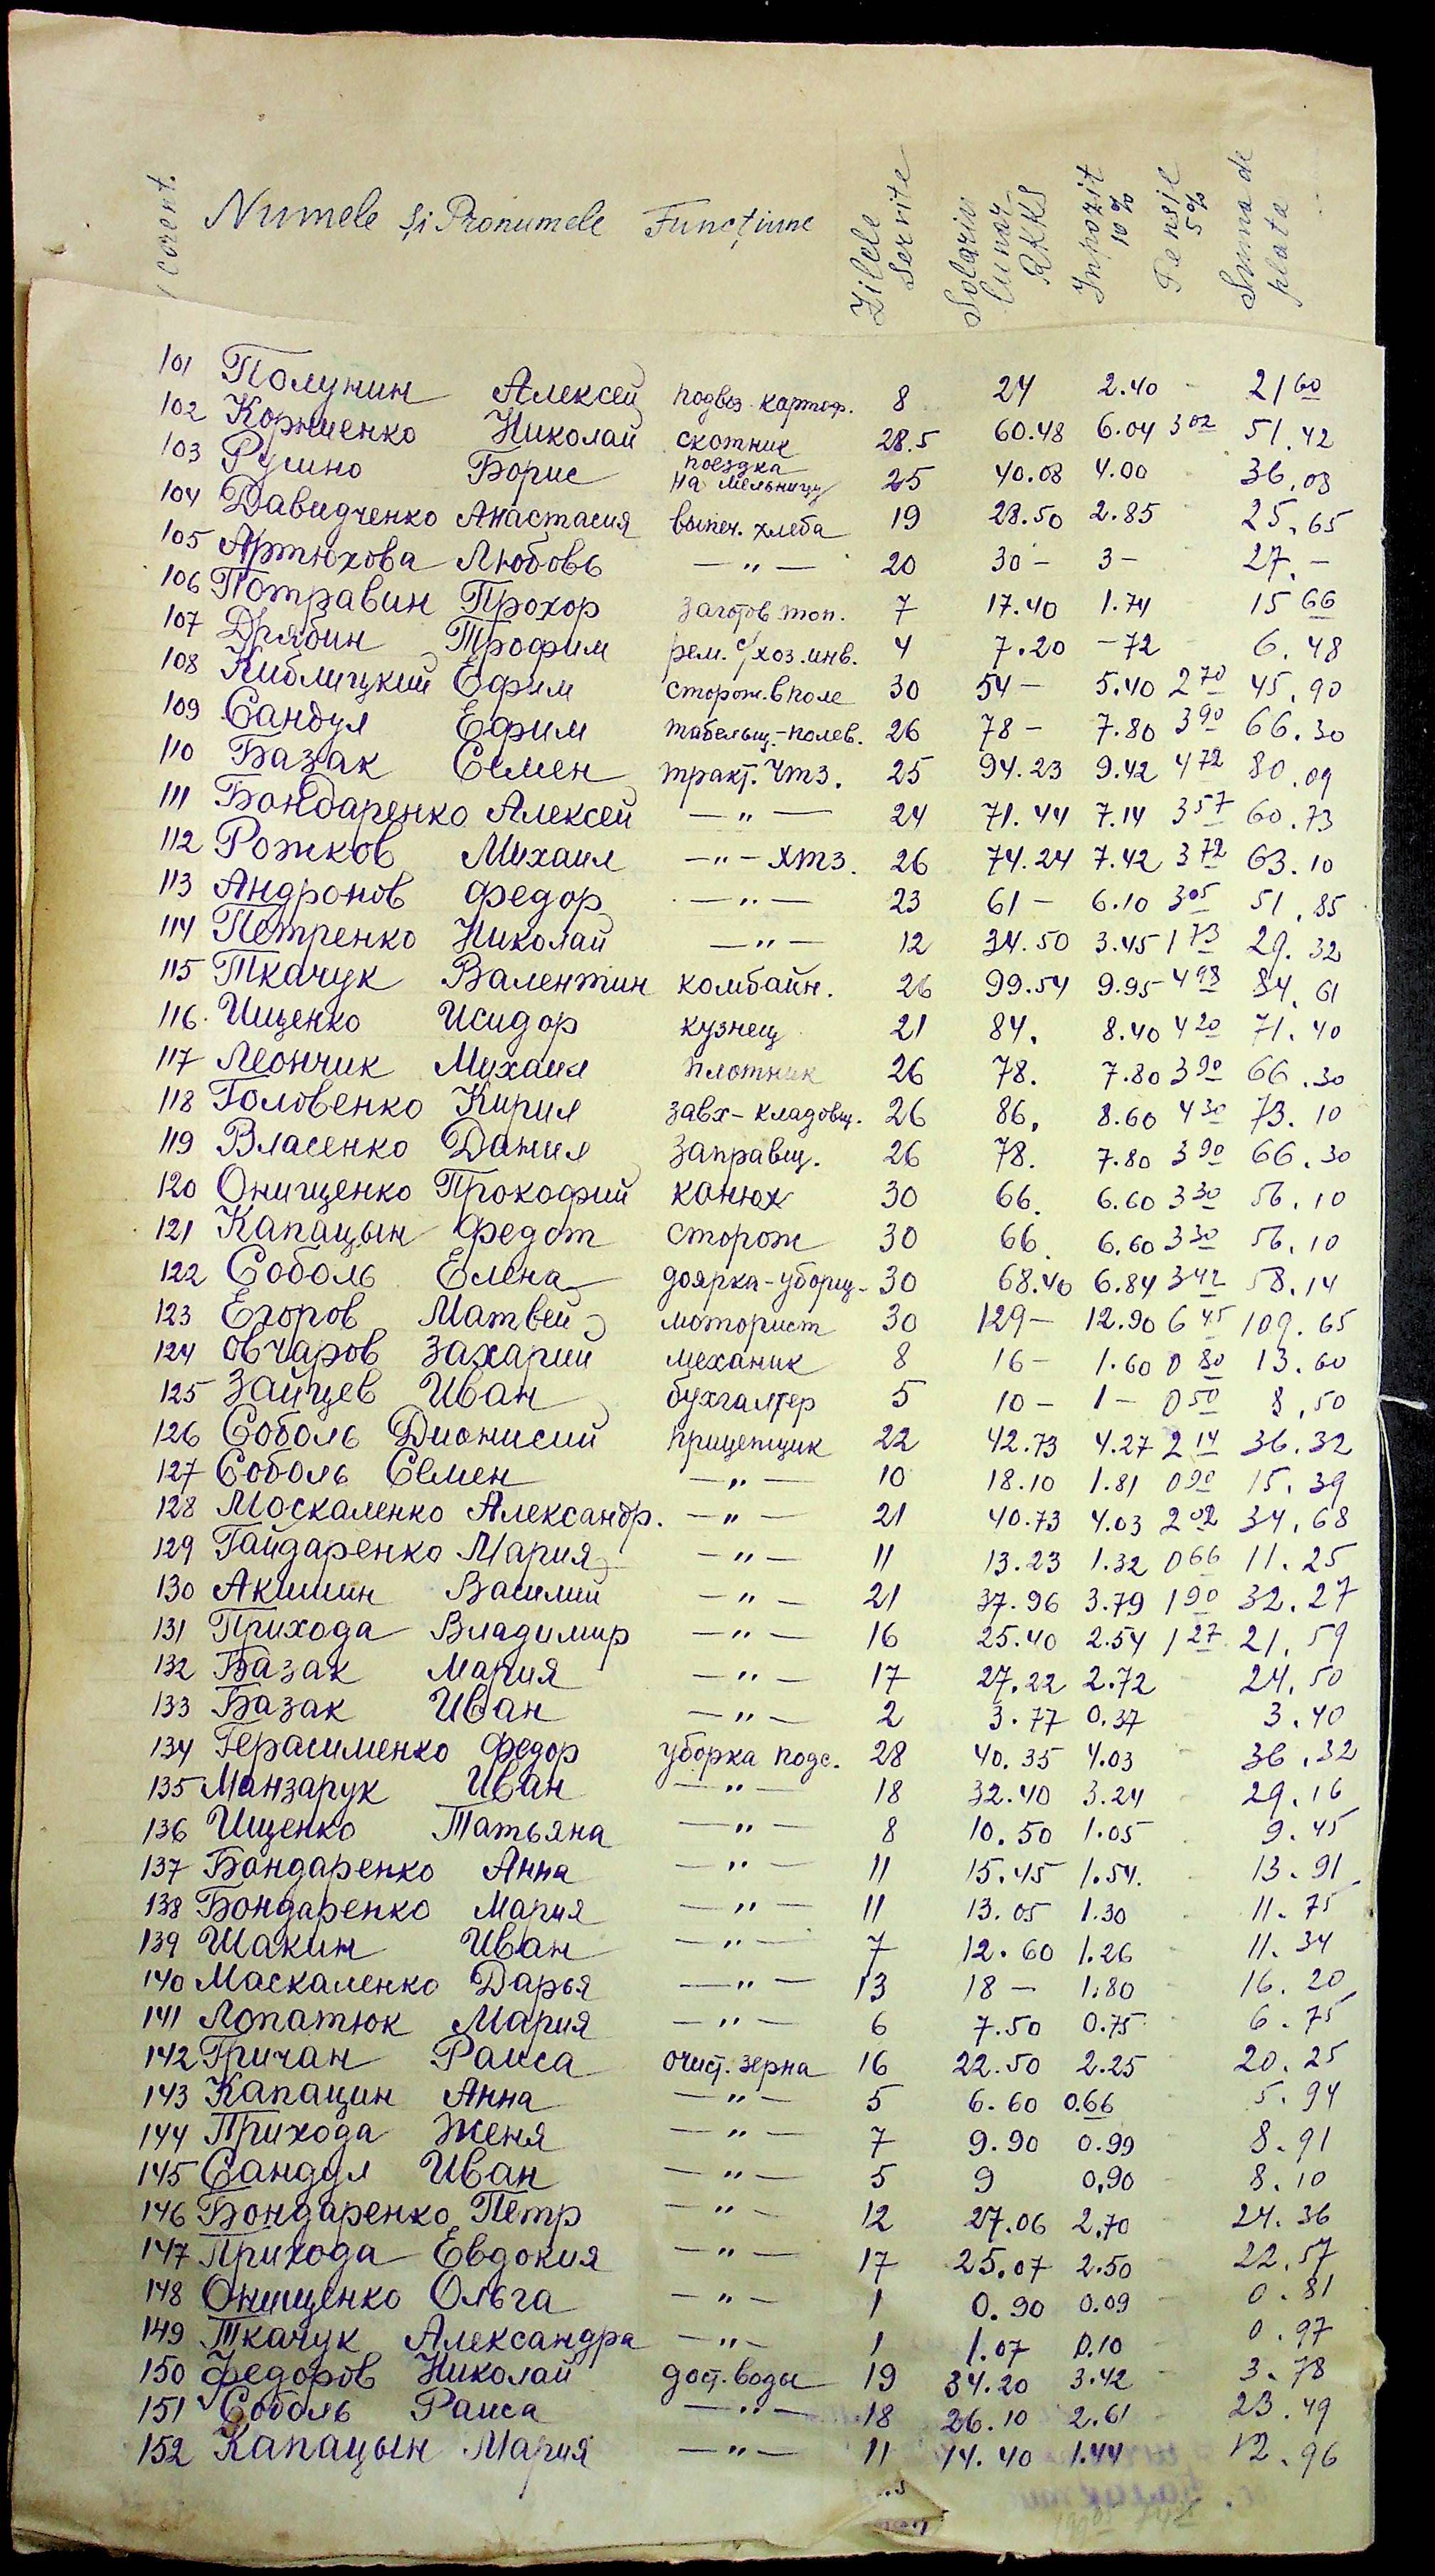 corent. Numele și Pronumele Funcțiune Zilele Servite Solariu lunar RKKS Inpozit 10% Pensie 5% Suma de plata
101 Полунин Алексей подвоз. картоф. 8 24 2.40 - 21 60
102 Корниенко Николай скотник 28.5 60.48 6.04 3 02 51.42
103 Русино Борис поездка на мельницу 25 40.08 4.00 - 36.08
104 Давидченко Анастасия выпеч. хлеба 19 28.50 2.85 25.65
105 Артюхова Любовь —"— 20 30- 3- 27.-
106 Потравин Прохор Заготов. топ. 7 17.40 1.74 15 66
107 Дрябин Трофим рем. с/хоз. инв. 4 7.20 -72 6.48
108 Киблицкий Ефим сторож. в поле 30 54- 5.40 2 70 45.90
109 Сандул Ефим табельщ.-полев. 26 78- 7.80 3 90 66.30
110 Базак Семен тракт. Чтз. 25 94.23 9.42 4 72 80.09
111 Бондаренко Алексей —"— 24 71.44 7.14 3 57 60.73
112 Рожков Михаил —"— хтз. 26 74.24 7.42 3 72 63.10
113 Андронов Федор —"— 23 61- 6.10 3 05 51.85
114 Петренко Николай —"— 12 34.50 3.45 1 73 29.32
115 Ткачук Валентин комбайн. 26 99.54 9.95 4 98 84.61
116. Ищенко Исидор кузнец 21 84. 8.40 4 20 71.40
117 Леончик Михаил плотник 26 78. 7.80 3 90 66.30
118 Головенко Кирил завх-кладовщ. 26 86. 8.60 4 30 73.10
119 Власенко Данил Заправщ. 26 78. 7.80 3 90 66.30
120 Онищенко Прокофий конюх 30 66. 6.60 3 30 56.10
121 Капацын Федот сторож 30 66. 6.60 3 30 56.10
122 Соболь Елена доярка-уборщ- 30 68.40 6.84 3 42 58.14
123 Егоров Матвей моторист 30 129- 12.90 6 45 109.65
124 Овчаров Захарий механик 8 16- 1.60 0 80 13.60
125 Зайцев Иван бухгалтер 5 10- 1- 0 50 8.50
126 Соболь Дионисий прицепщик 22 42.73 4.27 2 14 36.32
127 Соболь Семен —"— 10 18.10 1.81 0 90 15.39
128 Москаленко Александр. —"— 21 40.73 4.03 2 02 34.68
129 Гайдаренко Мария —"— 11 13.23 1.32 0 66 11.25
130 Акишин Василий —"— 21 37.96 3.79 1 90 32.27
131 Прихода Владимир —"— 16 25.40 2.54 1 27 21.59
132 Базак Мария —"— 17 27.22 2.72 24.50
133 Базак Иван —"— 2 3.77 0.37 3.40
134 Герасименко Федор уборка подс. 28 40.35 4.03 - 36.32
135 Манзарук Иван —"— 18 32.40 3.24 29.16
136 Ищенко Татьяна —"— 8 10.50 1.05 9.45
137 Бондаренко Анна —"— 11 15.45 1.54. 13.91
138 Бондаренко Мария —"— 11 13.05 1.30 11.75
139 Шакин Иван —"— 7 12.60 1.26 11.34
140 Маскаленко Дарья —"— 13 18- 1.80 16.20
141 Лопатюк Мария —"— 6 7.50 0.75 6.75
142 Гричан Раиса очист. зерна 16 22.50 2.25 20.25
143 Капацин Анна —"— 5 6.60 0.66 5.94
144 Прихода Женя —"— 7 9.90 0.99 8.91
145 Сандул Иван —"— 5 9 0,90 8.10
146 Бондаренко Петр —"— 12 27.06 2,70 24.36
147 Прихода Евдокия —"— 17 25.07 2.50 22.57
148 Онищенко Ольга —"— 1 0.90 0.09 0.81
149 Ткачук Александра —"— 1 1.07 0.10 0.97
150 Федоров Николай дост. воды 19 34.20 3.42 3.78
151 Соболь Раиса —"— 18 26.10 2.61 23.49
152 Капацын Мария —"— 11 14.40 1.44 12.96